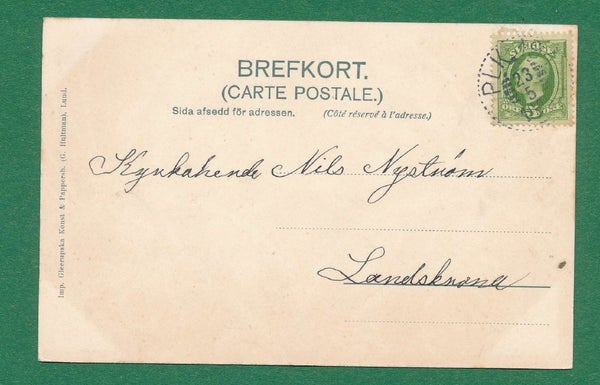 BREFKORT.
(CARTE POSTALE.)
Sida afsedd för adressen. (Côté réservé à l'adresse.)
Kyrkoherde Nils Nyström
Landskrona
Imp. Gleerupska Konst & Pappersh. (G. Hultman), Lund.
PLK
23
5
SVERIGE